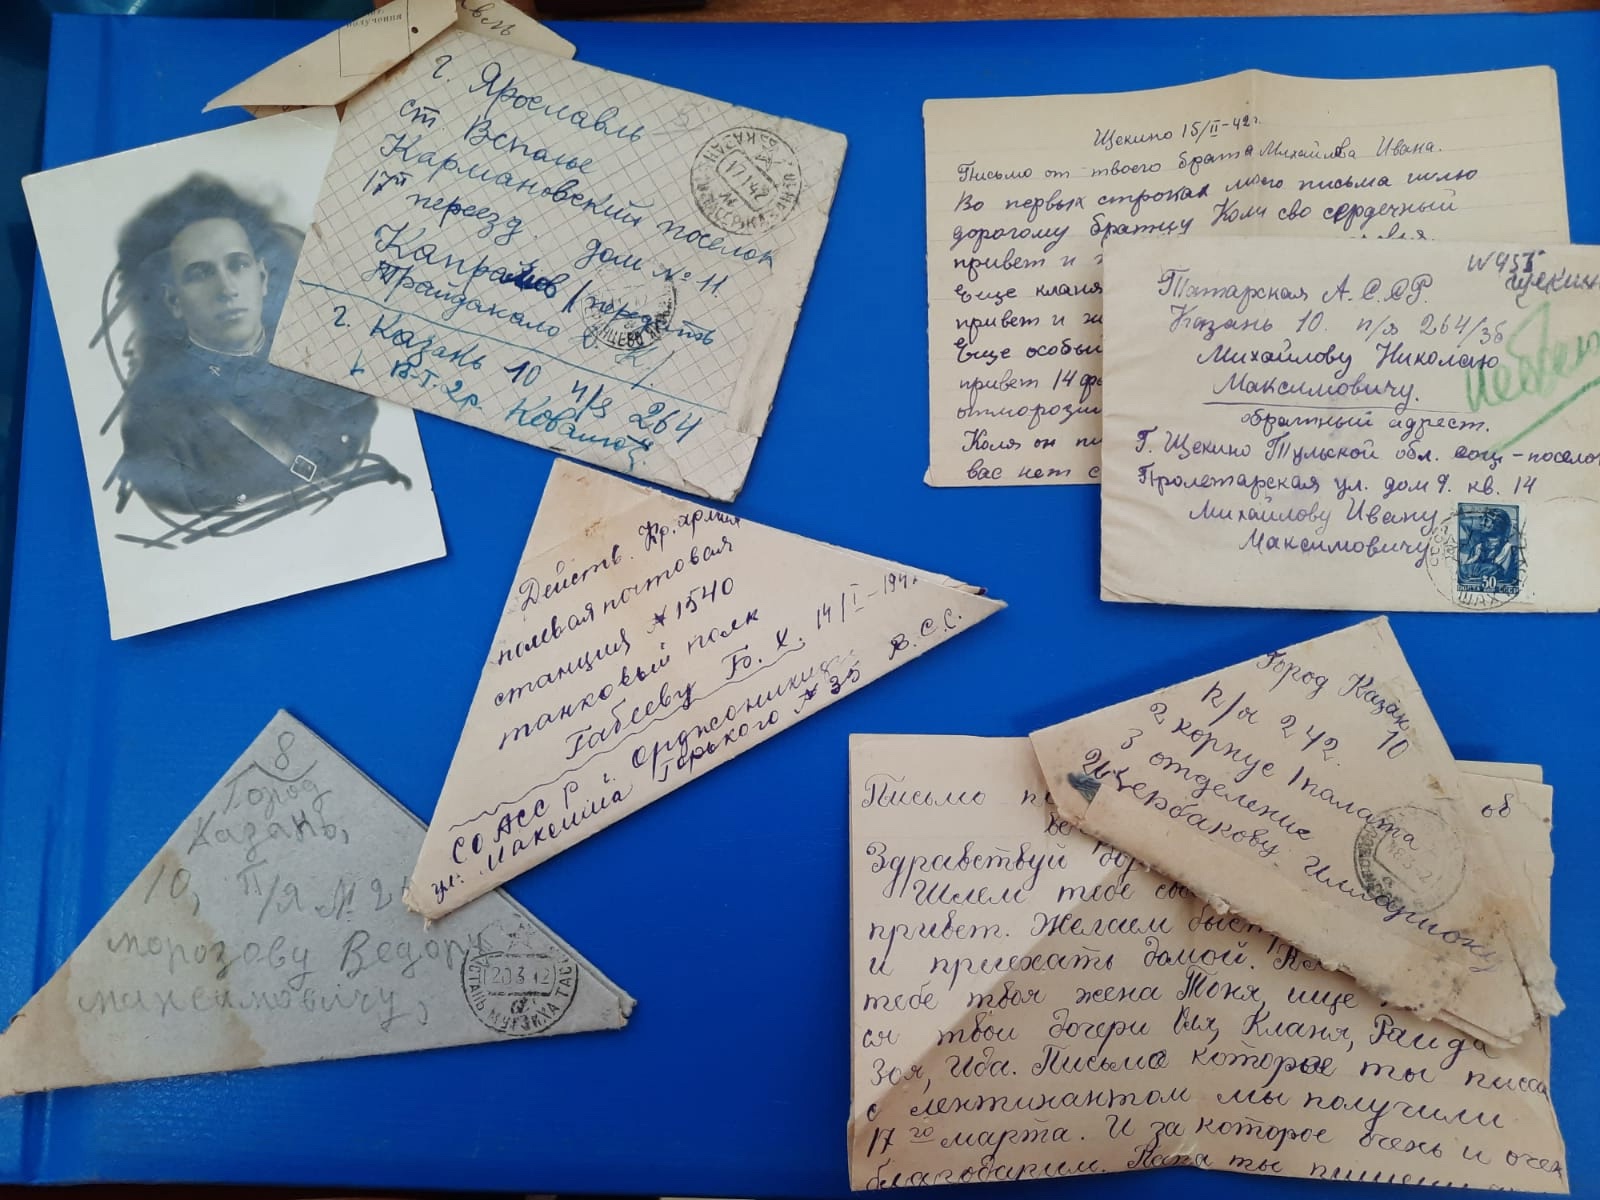 получения
г. Ярославль
ст. Всполье
Кармановский поселок
17й переезд. дом № 11.
передать
г. Казань 10 п/я 264
Щекино 15/II-42г.
Письмо от твоего брата Михайлова Ивана.
Во первых строках моего письма шлю
дорогому братцу Коли сво сердечный
привет и
Еще кланя
привет и
Еще особый
привет 14
отморозил
Коля он
вас нет с
Татарская А.С.С.Р.
Казань 10. п/я 264/36
Михайлову Николаю
Максимовичу.
обратный адрест.
Г. Щекино Тульской обл. соц-поселок
Пролетарская ул. дом 9. кв. 14
Михайлову Ивану
Максимовичу
30
Действ. Кр. армия
полевая почтовая
станция № 1540
танковый полк
Габееву Б. Х. 14/I-194
СО АССР г. Орджоникидзе В.С.С.
ул: Максима Горького № 35
8
Город
Казань,
10, п/я № 2
морозову Ведору
максимовичу,
20 3 42
Город Казан 10
п/я 242.
2 корпус 1 палата
3 отделение
Щербакову Иллариону
Письмо
об
Здравствуй
Шлем тебе
привет. Желаем быст
и приехать домой.
тебе твоя жена Тоня, ище
ся твои дочери Кланя, Раида
Зоя, Ида. Письмо которое ты писал
с лентинантом мы получили
17го марта. И за которое очень и очень
благодарим. Папа ты пишеш